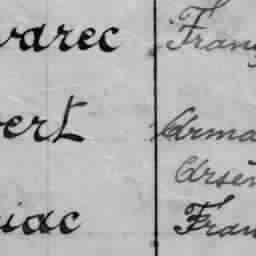 varec Franç
bert Arma
Arsèn
iac Fran